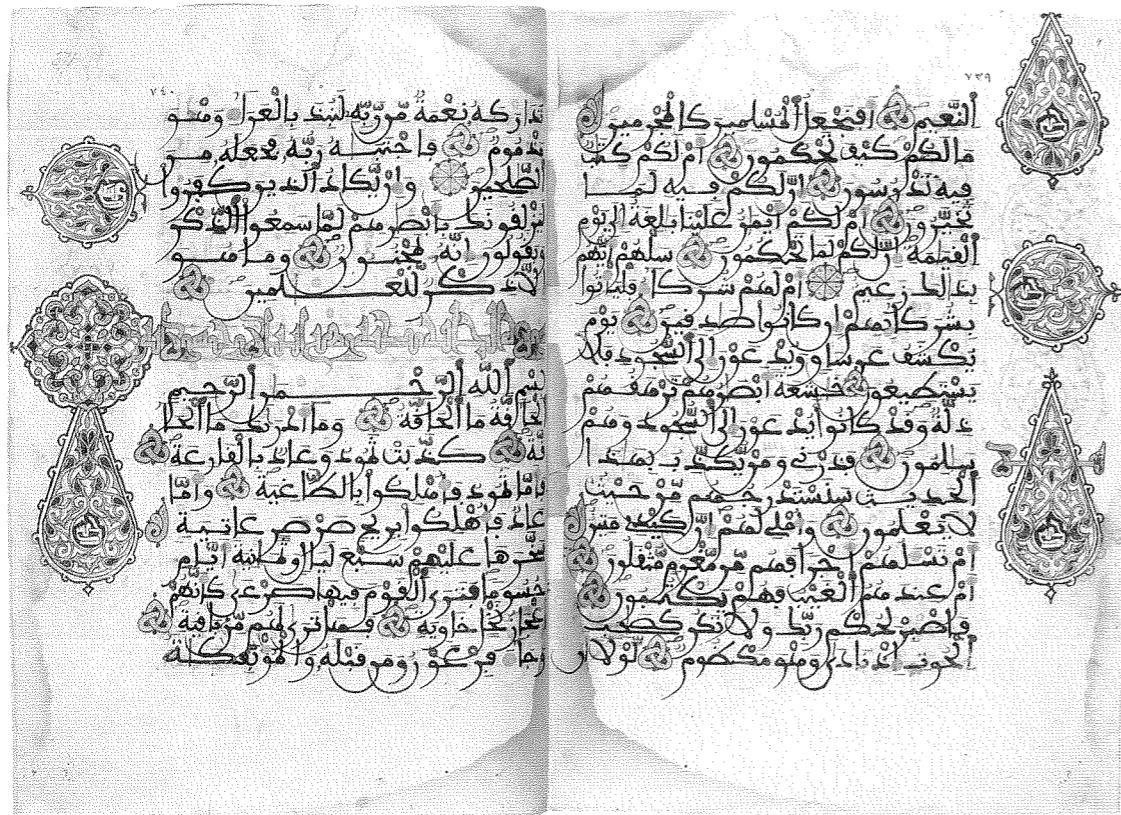 ٧٣٩
النعيم افنجعل المسلمين كالمجرمين
ما لكم كيف تحكمون ام لكم كتب
فيه تدرسون ان لكم فيه لما
تخيرون ام لكم ايمن علينا بلغة الى يوم
القيمة ان لكم لما تحكمون سلهم ايهم
بذلك زعيم ام لهم شركاء فلياتوا
بشركائهم ان كانوا صدقين يوم
يكشف عن ساق ويدعون الى السجود فلا
يستطيعون خشعة ابصرهم ترهقهم
ذلة وقد كانوا يدعون الى السجود وهم
سلمون فذرني ومن يكذب بهذا
الحديث سنستدرجهم من حيث
لا يعلمون واملي لهم ان كيدي متين
ام تسلهم اجرا فهم من مغرم مثقلون
ام عندهم الغيب فهم يكتبون
فاصبر لحكم ربك ولا تكن كصحب
الحوت اذ نادى وهو مكظوم لولا ان
٧٤٠
تداركه نعمة من ربه لنبذ بالعراء وهو
مذموم فاجتبه ربه فجعله من
الصلحين وان يكاد الذين كفروا
ليزلقونك بابصرهم لما سمعوا الذكر
ويقولون انه لمجنون وما هو
الا ذكر للعلمين
بسم الله الرحمن الرحيم
الحاقة ما الحاقة وما ادريك ما الحا
قة كذبت ثمود وعاد بالقارعة
فاما ثمود فاهلكوا بالطاغية واما
عاد فاهلكوا بريح صرصر عاتية
سخرها عليهم سبع ليال وثمنية ايام
حسوما فترى القوم فيها صرعى كانهم
اعجاز نخل خاوية فهل ترى لهم من باقية
وجاء فرعون ومن قبله والموتفكت